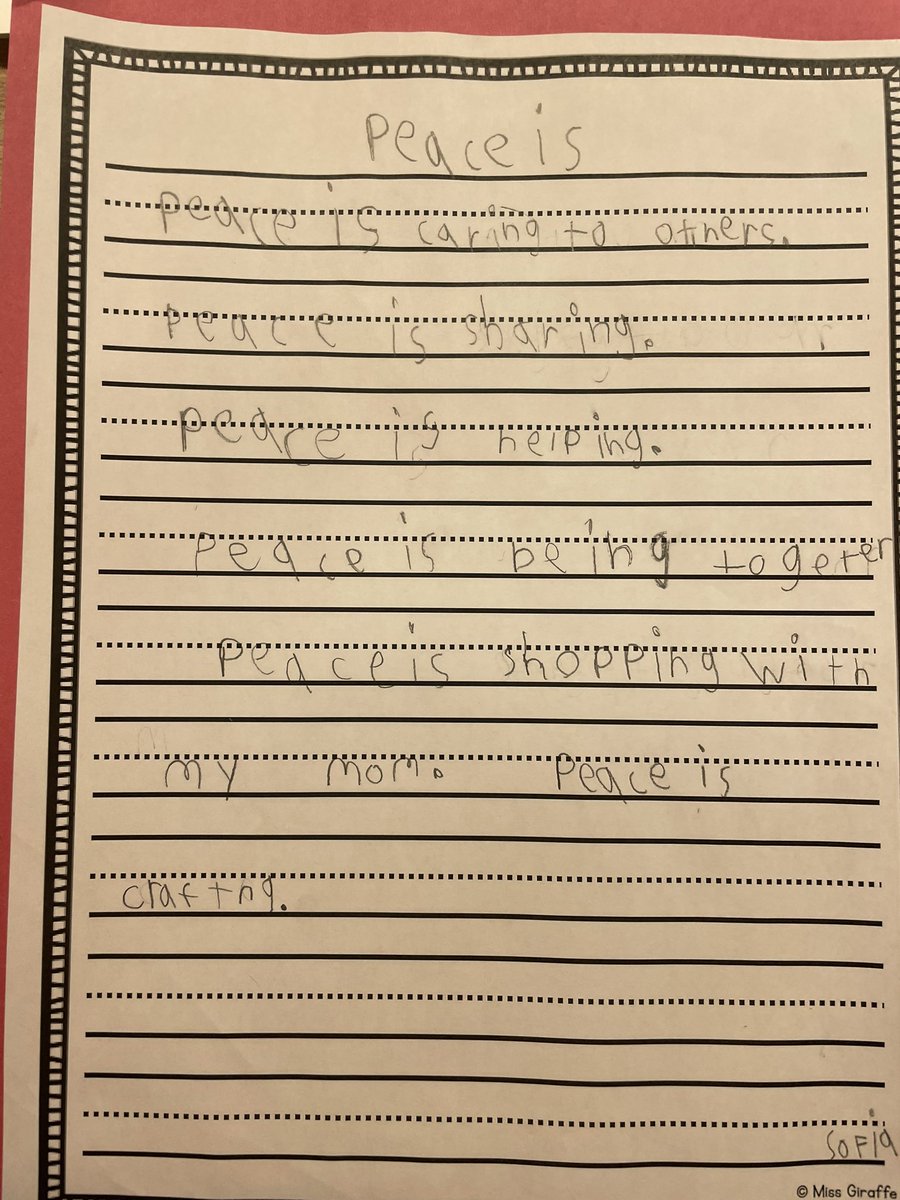 Peace is
peace is caring to others.
peace is sharing.
peace is helping.
Peace is being togeter
Peace is shopping with
my mom. Peace is
craftng.
SoFia
© Miss Giraffe